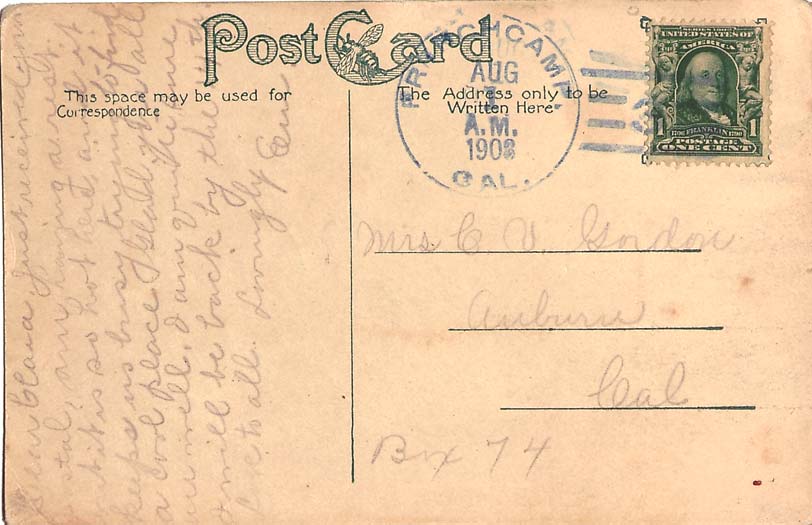 Post Card
This space may be used for
Correspondence
The Address only to be
Written Here
FRENCH CAMP,
AUG
A.M.
1908
CAL.
SERIES 1902
UNITED STATES OF
AMERICA
1 1706 FRANKLIN 1790 1
POSTAGE
ONE CENT
Mrs C. V. Gordon
Auburn
Cal
Box 74
Dear Clara, Just received your
postal, am having a rest
but it is so hot here, and it
keeps us busy trying to find
a cool place. Gladys & all
are well. I am Vinnie
& will be back by the
Love to all. Lovingly